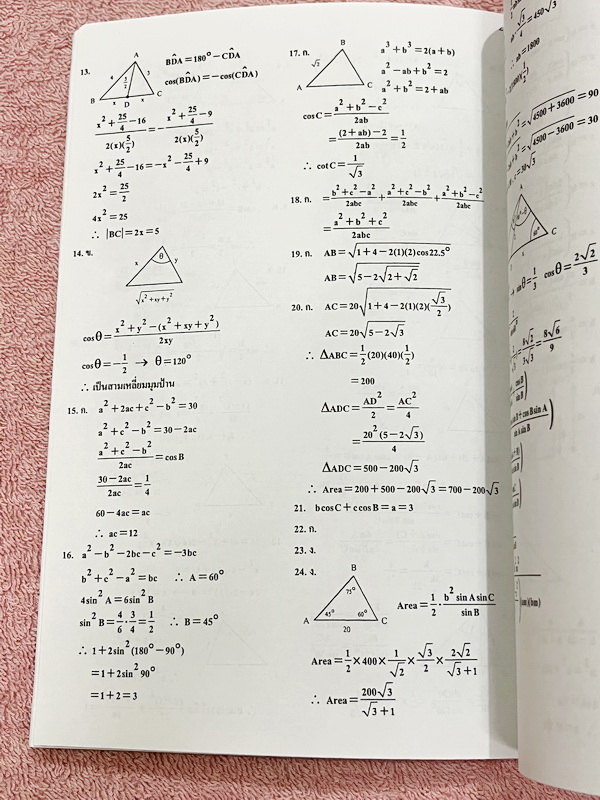 13.
A
4
5/2
3
B x D x C
BD̂A = 180° − CD̂A
cos(BD̂A) = −cos(CD̂A)
(x² + 25/4 − 16)/(2(x)(5/2)) = −(x² + 25/4 − 9)/(2(x)(5/2))
x² + 25/4 − 16 = −x² − 25/4 + 9
2x² = 25/2
4x² = 25
∴ |BC| = 2x = 5
14. ข.
x θ y
√(x² + xy + y²)
cosθ = (x² + y² − (x² + xy + y²))/(2xy)
cosθ = −1/2 → θ = 120°
∴ เป็นสามเหลี่ยมมุมป้าน
15. ก. a² + 2ac + c² − b² = 30
a² + c² − b² = 30 − 2ac
(a² + c² − b²)/(2ac) = cos B
(30 − 2ac)/(2ac) = 1/4
60 − 4ac = ac
∴ ac = 12
16. a² − b² − 2bc − c² = −3bc
b² + c² − a² = bc ∴ A = 60°
4sin² A = 6sin² B
sin² B = 4/6 · 3/4 = 1/2 ∴ B = 45°
∴ 1 + 2sin²(180° − 90°)
= 1 + 2sin² 90°
= 1 + 2 = 3
17. ก.
B
√3
A C
a³ + b³ = 2(a + b)
a² − ab + b² = 2
a² + b² = 2 + ab
cos C = (a² + b² − c²)/(2ab)
= ((2 + ab) − 2)/(2ab) = 1/2
∴ cot C = 1/√3
18. ก. = (b² + c² − a²)/(2abc) + (a² + c² − b²)/(2abc) + (a² + b² − c²)/(2abc)
= (a² + b² + c²)/(2abc)
19. ก. AB = √(1 + 4 − 2(1)(2)cos 22.5°)
AB = √(5 − 2√(2 + √2))
20. ก. AC = 20√(1 + 4 − 2(1)(2)(√3/2))
AC = 20√(5 − 2√3)
∴ ΔABC = 1/2(20)(40)(1/2)
= 200
ΔADC = AD²/2 = AC²/4
= 20²(5 − 2√3)/4
ΔADC = 500 − 200√3
∴ Area = 200 + 500 − 200√3 = 700 − 200√3
21. b cos C + c cos B = a = 3
22. ก.
23. ง.
24. ง.
B
75°
45° 60°
A 20 C
Area = 1/2 · (b² sin A sin C)/(sin B)
Area = 1/2 × 400 × 1/√2 × √3/2 × 2√2/(√3 + 1)
∴ Area = 200√3/(√3 + 1)
√3/4 = 450√3
∴ ab = 1800
= √(4500 + 3600) = 90
= √(4500 − 3600) = 30
= 30√3
A
60°
C
sinθ = 1/3 cosθ = 2√2/3
= 8√2/(3√3) = 8√6/9